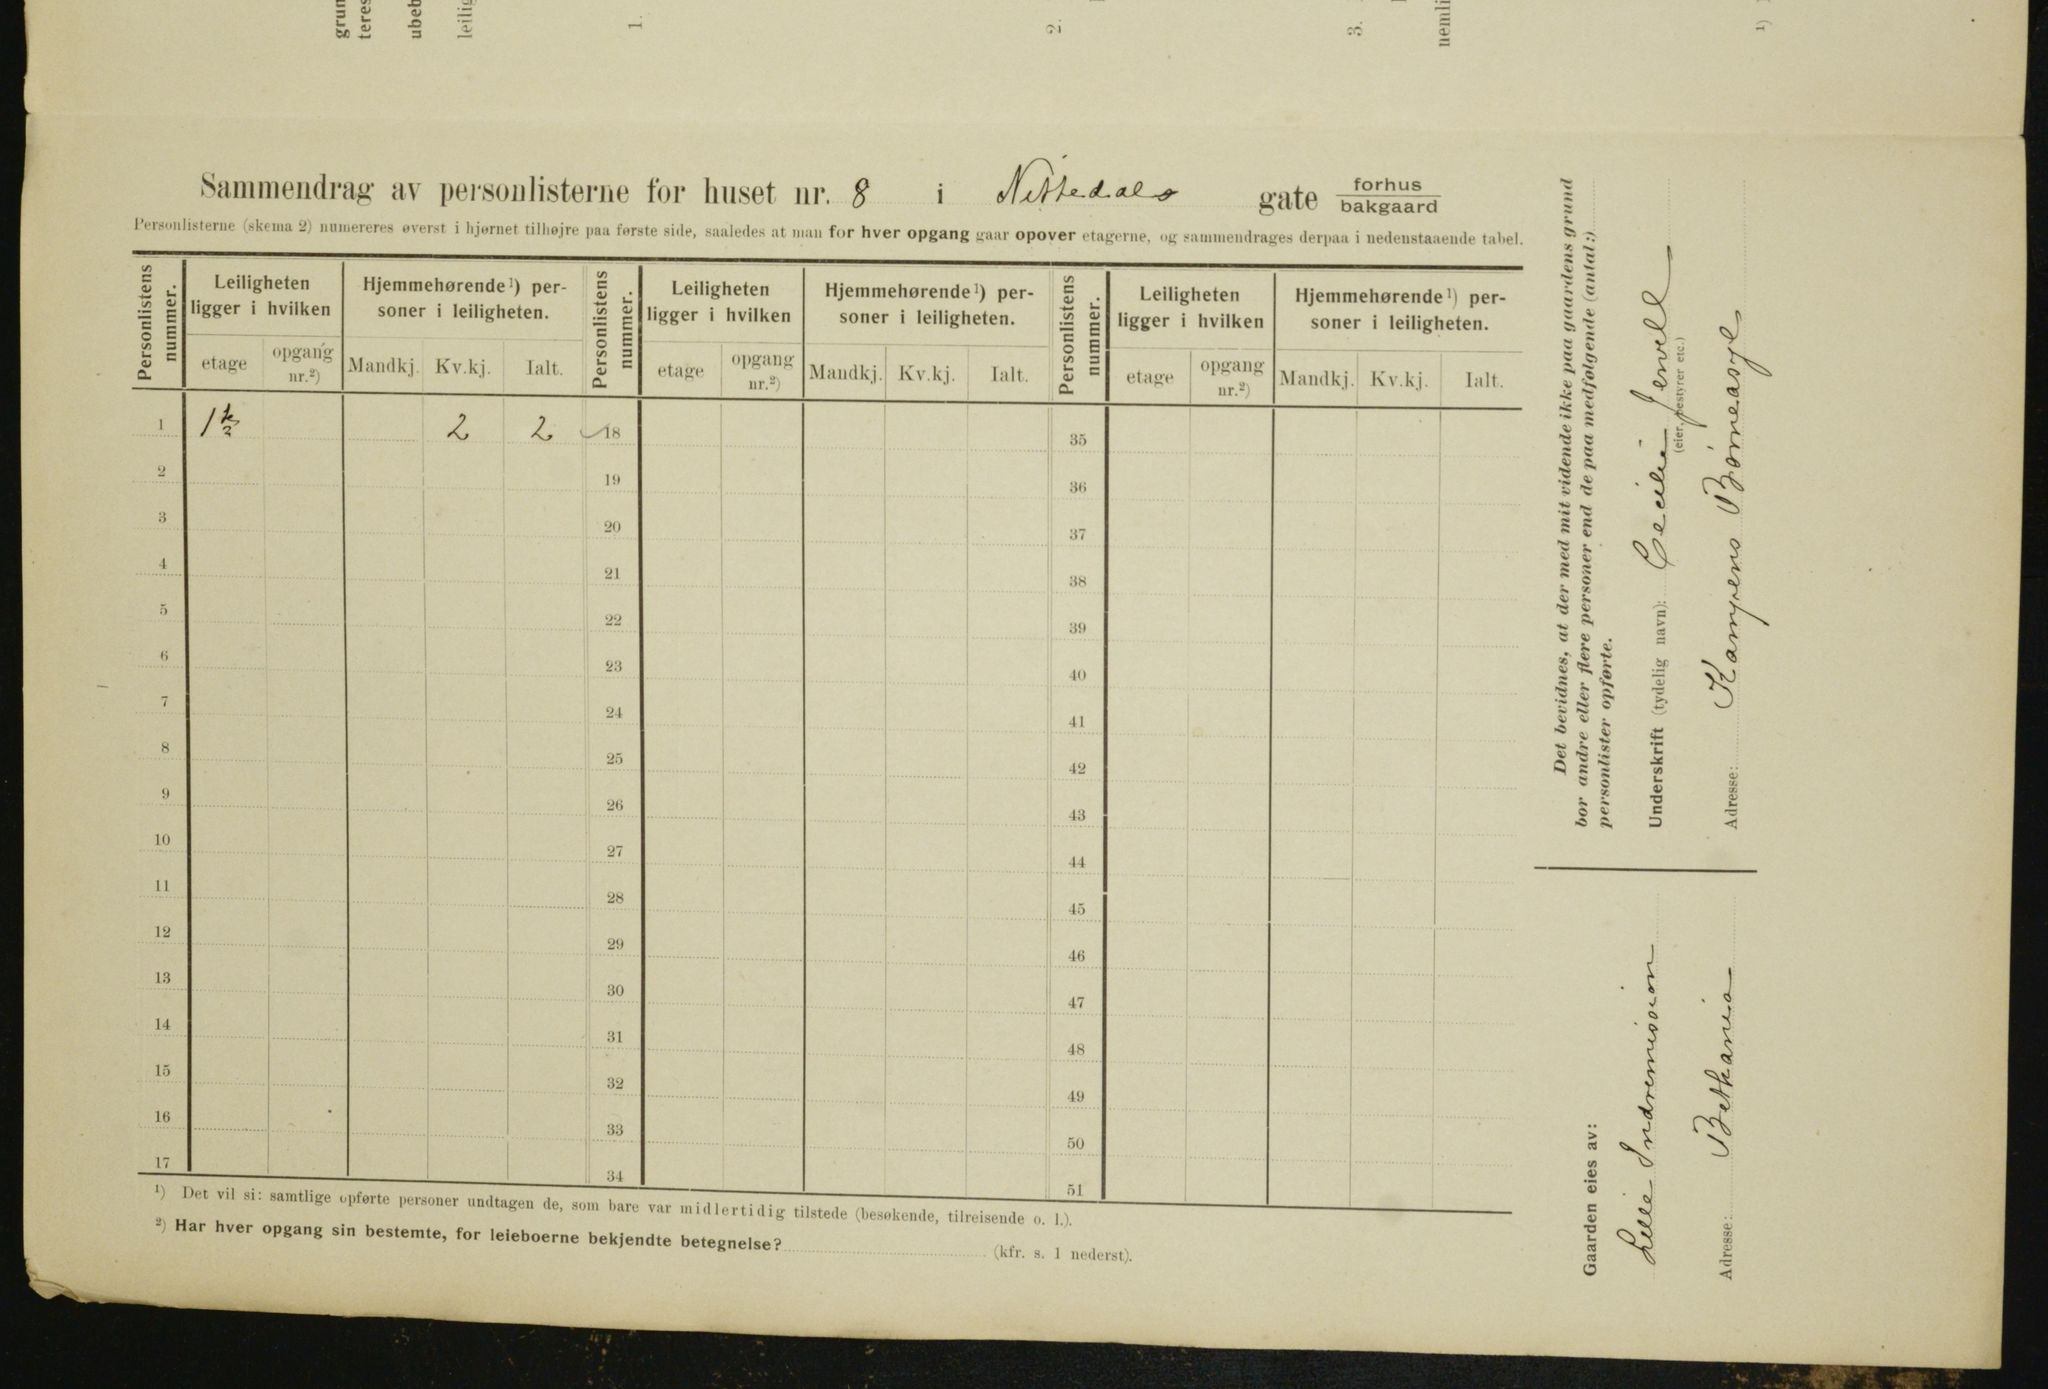 grun
teres
ubeb
leilig
1.
2.
3.
nemli
1)
Sammendrag av personlisterne for huset nr. 8 i Nittedals gate forhus
bakgaard
Personlisterne (skema 2) numereres øverst i hjørnet tilhøjre paa første side, saaledes at man for hver opgang gaar opover etagerne, og sammendrages derpaa i nedenstaaende tabel.
Personlistens nummer. Leiligheten ligger i hvilken Hjemmehørende 1) personer i leiligheten. Personlistens nummer. Leiligheten ligger i hvilken Hjemmehørende 1) personer i leiligheten. Personlistens nummer. Leiligheten ligger i hvilken Hjemmehørende 1) personer i leiligheten.
etage opgang nr.2) Mandkj. Kv.kj. Ialt. etage opgang nr.2) Mandkj. Kv.kj. Ialt. etage opgang nr.2) Mandkj. Kv.kj. Ialt.
1 1 2 2 18 35
2 19 36
3 20 37
4 21 38
5 22 39
6 23 40
7 24 41
8 25 42
9 26 43
10 27 44
11 28 45
12 29 46
13 30 47
14 31 48
15 32 49
16 33 50
17 34 51
1) Det vil si: samtlige opførte personer undtagen de, som bare var midlertidig tilstede (besøkende, tilreisende o. l.).
2) Har hver opgang sin bestemte, for leieboerne bekjendte betegnelse? (kfr. s. 1 nederst).
Det bevidnes, at der med mit vidende ikke paa gaardens grund
bor andre eller flere personer end de paa medfølgende (antal:)
personlister opførte.
Underskrift (tydelig navn): Cecilie Jervell
(eier, bestyrer etc.)
Adresse: Kampens Børneasyl
Gaarden eies av:
Lille Indremission
Adresse: Bethania